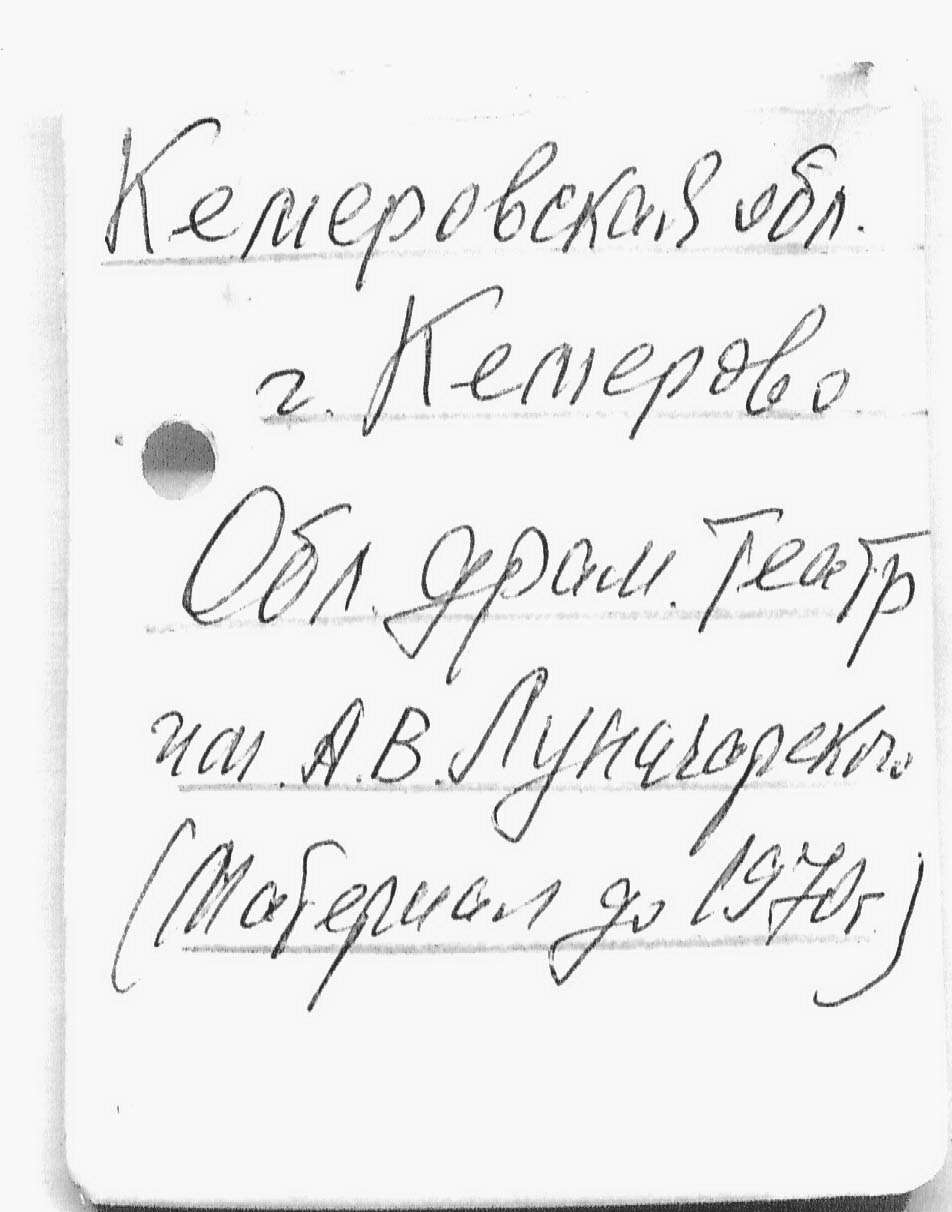 Кемеровская обл.
г. Кемерово
Обл. драм. театр
им. А.В. Луначарского
(Материал до 1970г.)